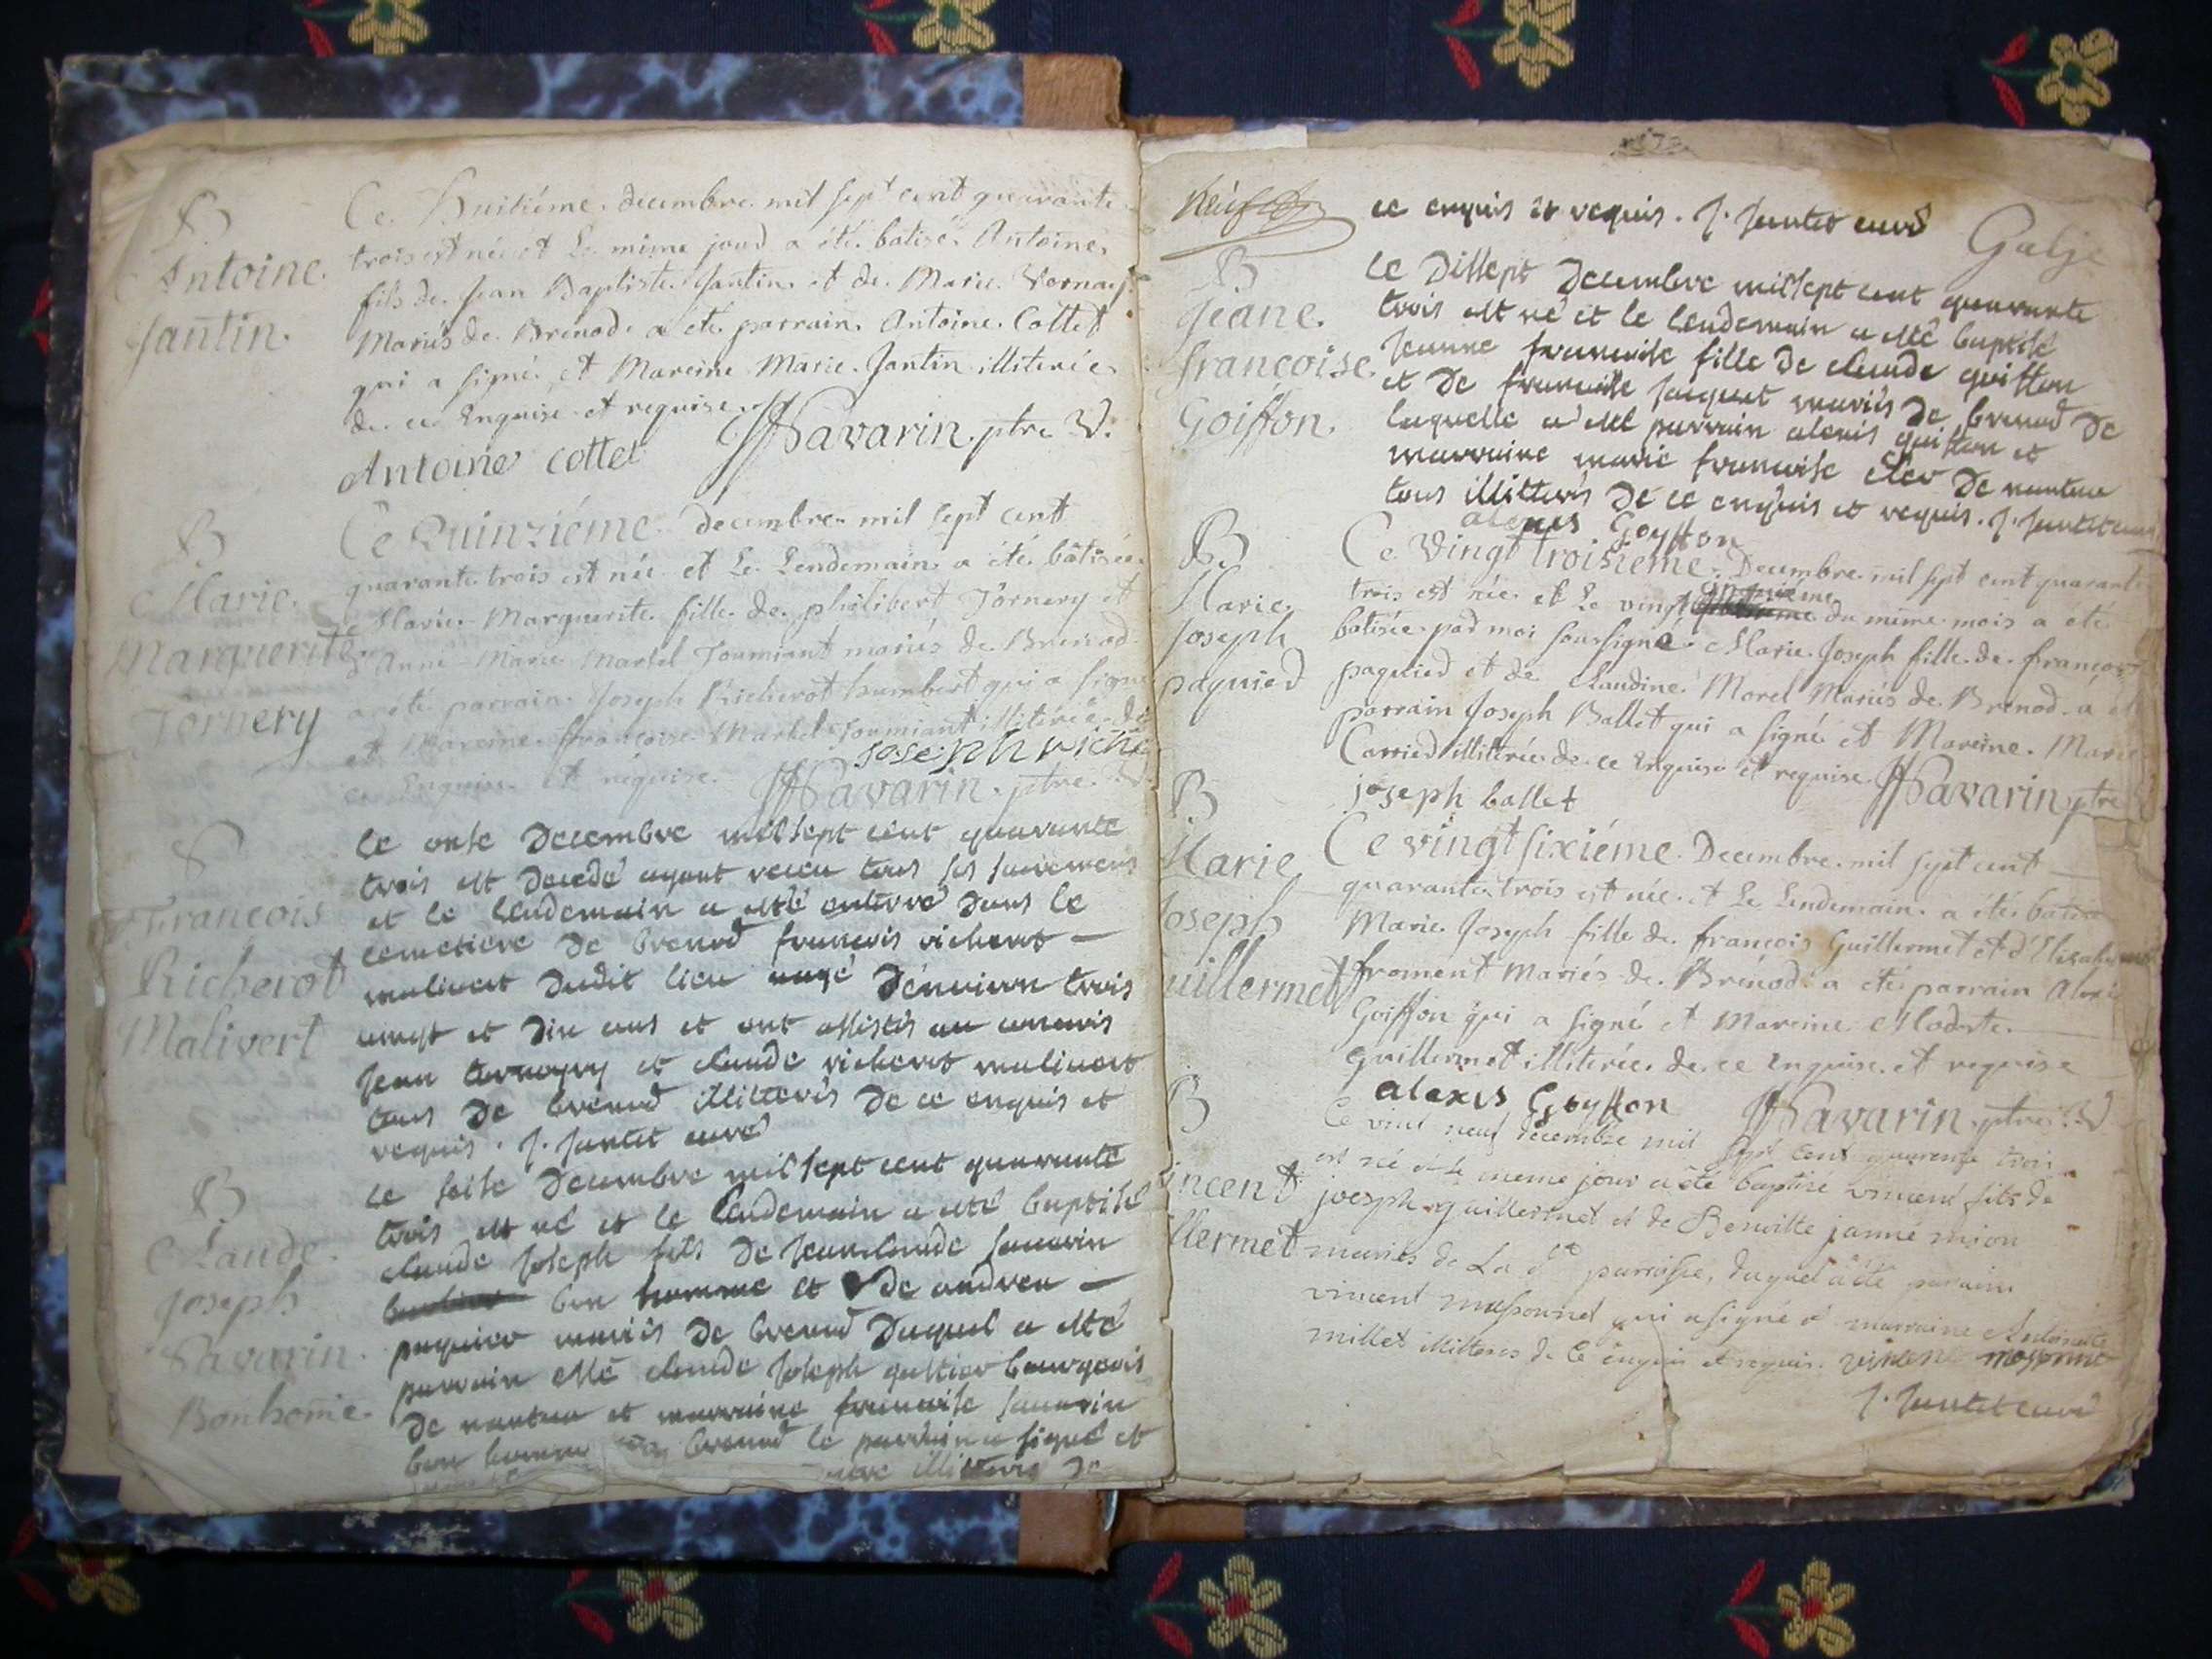 B
Antoine
Jantin.
Ce Huitiéme decembre mil sept cent quarante
trois est né et Le même jour a été batisé Antoine
fils de Jean Baptiste Jantin et de Marie Vornay
Mariés de Brenod a été parrain Antoine Collet
qui a signé et Mareine Marie Jantin illiterée
de ce Enquise et requise. Savarin ptre V.
Antoine collet
B
Marie
Marguerite
Tornery
Ce Quinziéme decembre mil sept cent
quarante trois est née et Le Lendemain a été bâtisée
Marie Marguerite fille de philibert Tornery et
d'Anne Marie Martel Tourniant mariés de Brenod
a été parrain Joseph Richerot humbert qui a signé
et Mareine françoise Martel Tourniant illiterée de
ce Enquise et réquise. joseph riche
Savarin ptre V.
S
François
Richerot
Malivert
le onse Decembre mil sept cent quarante
trois est Decedé ayant receu tous ses sacremens
et le lendemain a esté enterré dans le
cemetiere de brenod francois richerot
malivert dudit lieu agé d'environ trois
vingt et dix ans et ont assistés au convois
Jean torneyry et claude richerot malivert
tous de brenod illitterés de ce enquis et
requis. J. Jantet curé
B
Claude
Joseph
Savarin
Bonhome
le seise Decembre mil sept cent quarante
trois est né et le lendemain a esté baptisé
claude Joseph fils de Jean claude savarin
bon homme et de andrea
paquier mariés de brenod duquel a esté
parrain claude Joseph galtier bourgeois
de nantua et marraine francoise savarin
bon homme brenod le parrain a signé et
illitteres de
ce enquis et requis. J. Jantet curé
B
Jeane
françoise
Goiffon
le Dissept Decembre mil sept cent quarante
trois est né et le lendemain a esté baptisé
Jeanne francoise fille de claude goiffon
et de francoise Jacquet mariés de brenod de
laquelle a esté parrain alexis goiffon et
marraine marie francoise de nantua
tous illitterés de ce enquis et requis. J. Jantet curé
alexis Goyffon
B
Marie
Joseph
paquied
Ce Vingt troisiéme Decembre mil sept cent quarante
trois est née et Le vingt cinquiéme du même mois a été
batisée par moi soussigné Marie Joseph fille de françois
paquied et de Claudine Morel Mariés de Brenod a été
parrain Joseph Ballet qui a signé et Mareine Marie
Carried illiterée de ce Enquise et requise Savarin ptre
joseph ballet
B
Marie
Joseph
uillermet
Ce vingt sixiéme Decembre mil sept cent
quarante trois est née et Le Lendemain a été batisée
Marie Joseph fille de françois Guillermet et d'
froment Mariés de Brénod a été parrain Alexis
Goiffon qui a signé et Mareine Modeste
Guillermet illiterée de ce Enquise et requise
alexis Goyffon Savarin ptre V
B
incent
llermet
Ce vint neuf decembre mil sept cent quarente trois
est né et le meme jour a été baptisé vincent fils de
joesph guillermet et de Benoitte janne mion
mariés de La de parroisse, duquel a été parrain
vincent massonnet qui a signé et marraine Antoinette
millet illiteres de ce enquis et requis. vincent massonnet
J. Jantet curé